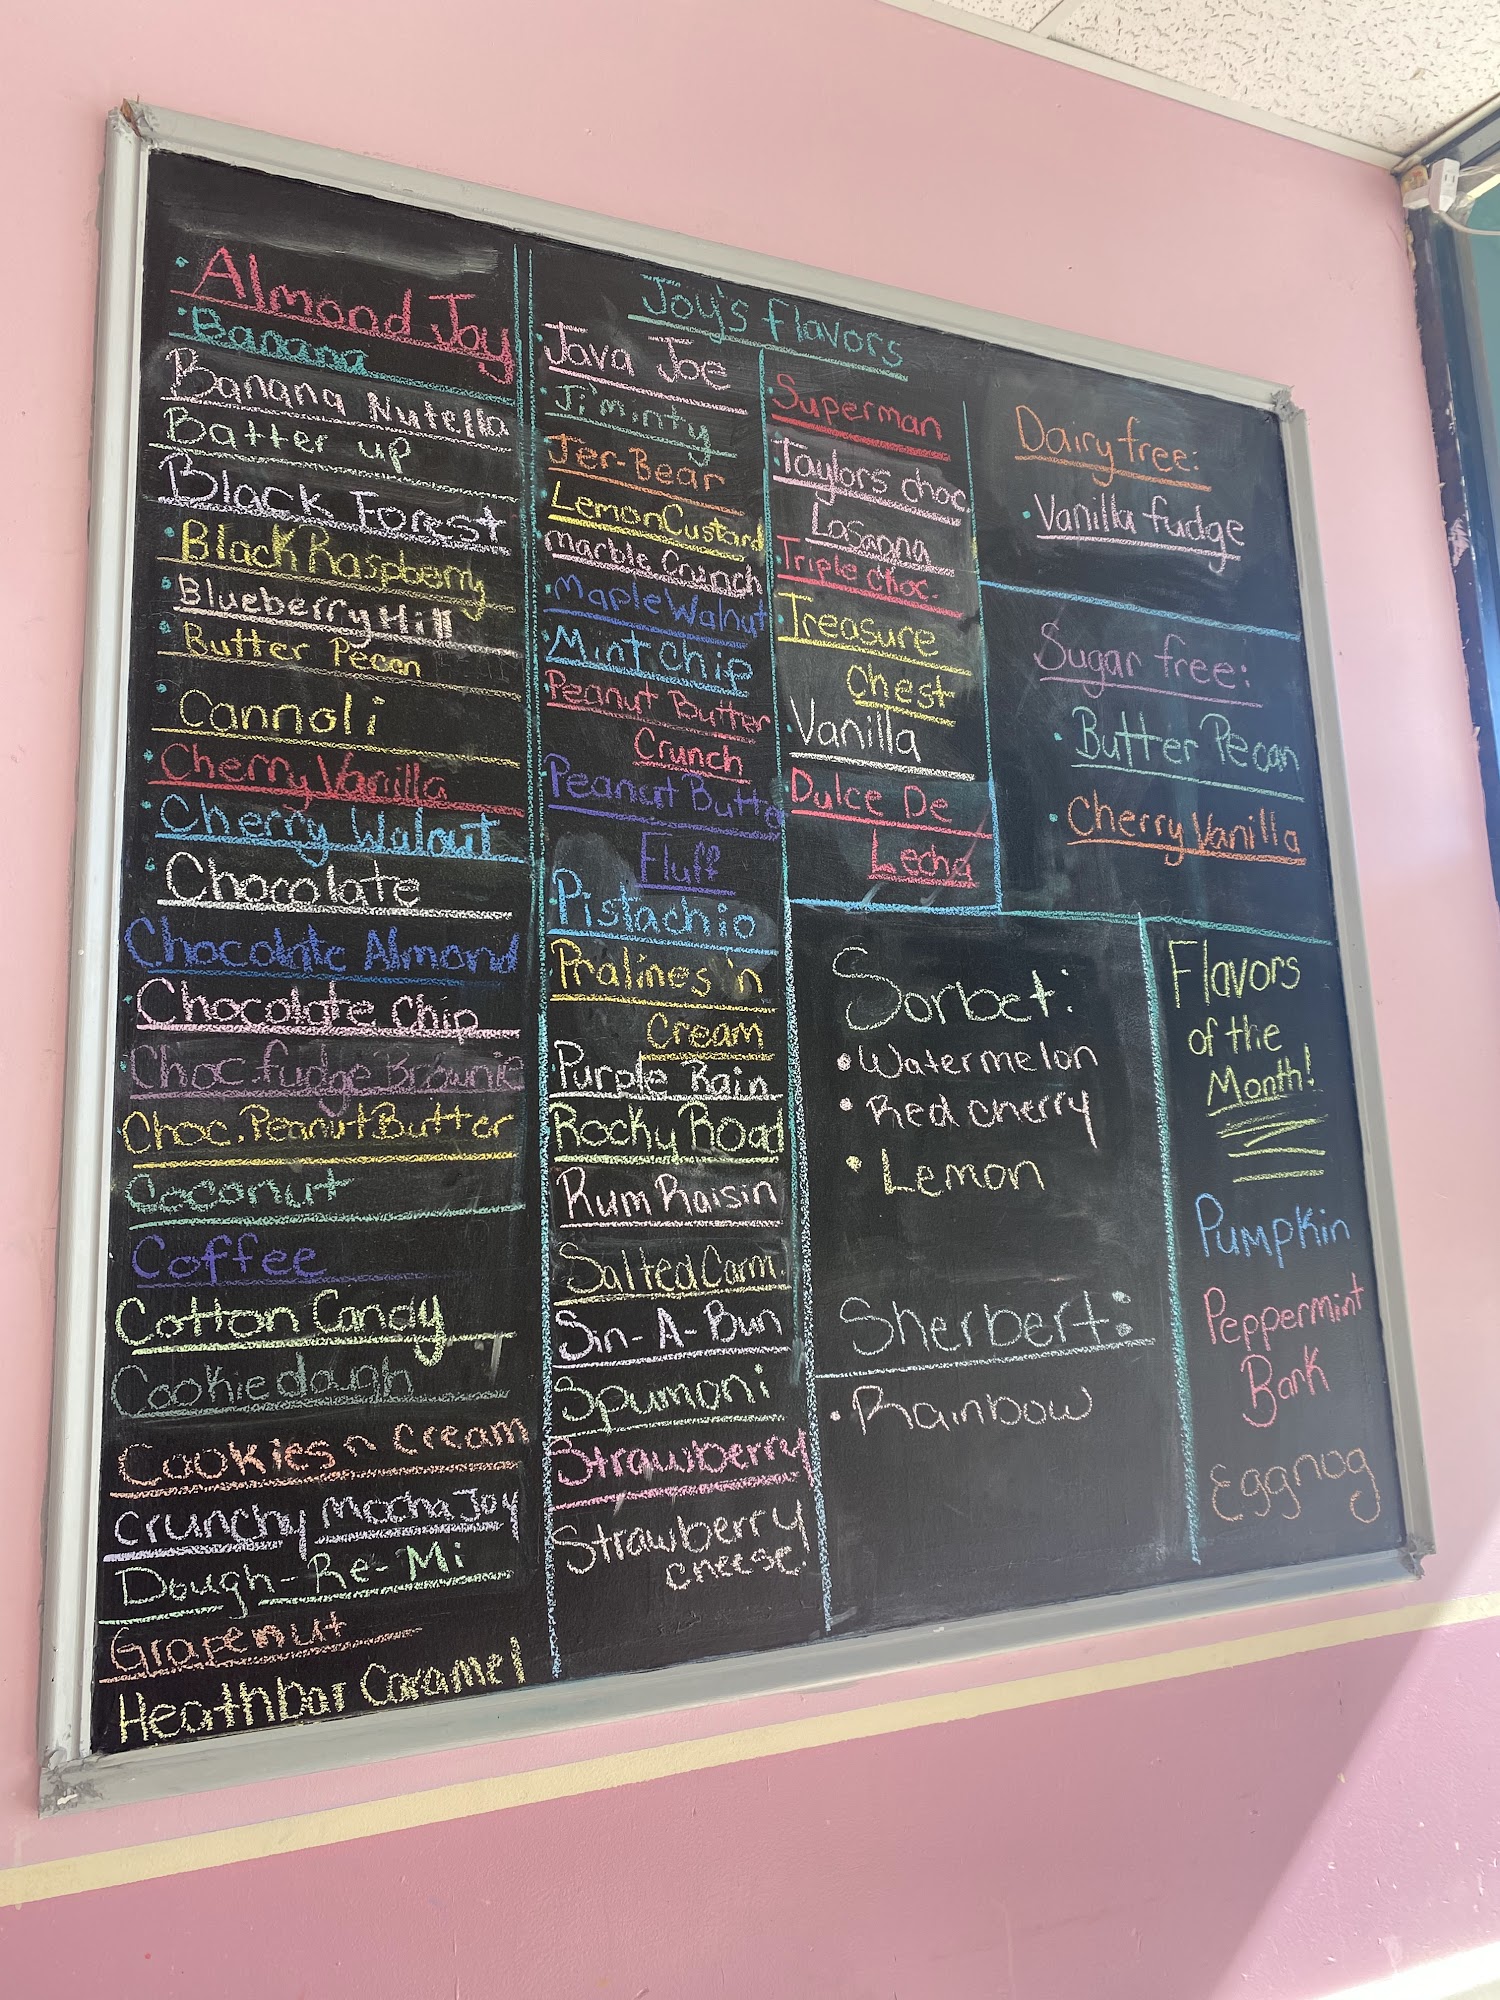 Joy's flavors
Almond Joy
Banana
Banana Nutella
Batter up
Black Forest
Black Raspberry
Blueberry Hill
Butter Pecan
Cannoli
Cherry Vanilla
Cherry Walnut
Chocolate
Chocolate Almond
Chocolate Chip
Choc. fudge Brownie
Choc. Peanut Butter
Coconut
Coffee
Cotton Candy
Cookiedough
Cookies n cream
Crunchy Mocha Joy
Dough-Re-Mi
Grapenut
Heathbar Caramel
Java Joe
Ji'minty
Jer-Bear
Lemon Custard
Marble Crunch
Maple Walnut
Mint chip
Peanut Butter
Crunch
Peanut Butte
Fluff
Pistachio
Pralines 'n
Cream
Purple Rain
Rocky Road
Rum Raisin
Salted Carm.
Sin-A-Bun
Spumoni
Strawberry
Strawberry
cheese.
Superman
Taylors choc
Lasagna
Triple choc.
Treasure
Chest
Vanilla
Dulce De
Leche
Dairy free:
Vanilla fudge
Sugar free:
Butter Pecan
Cherry Vanilla
Sorbet:
Watermelon
Red cherry
Lemon
Sherbert:
Rainbow
Flavors
of the
Month!
Pumpkin
Peppermint
Bark
Eggnog